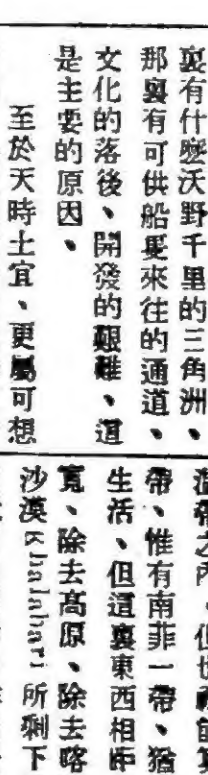 裏有什麽沃野千里的三角洲、
那裏有可供船隻來往的通道、
文化的落後、開發的艱難、這
是主要的原因、
至於天時土宜、更屬可想
溫帶之內、但也
帶、惟有南非一帶、猶
生活、但這裏東西相距
寬、除去高原、除去喀
沙漠 Khalahari 所剩下